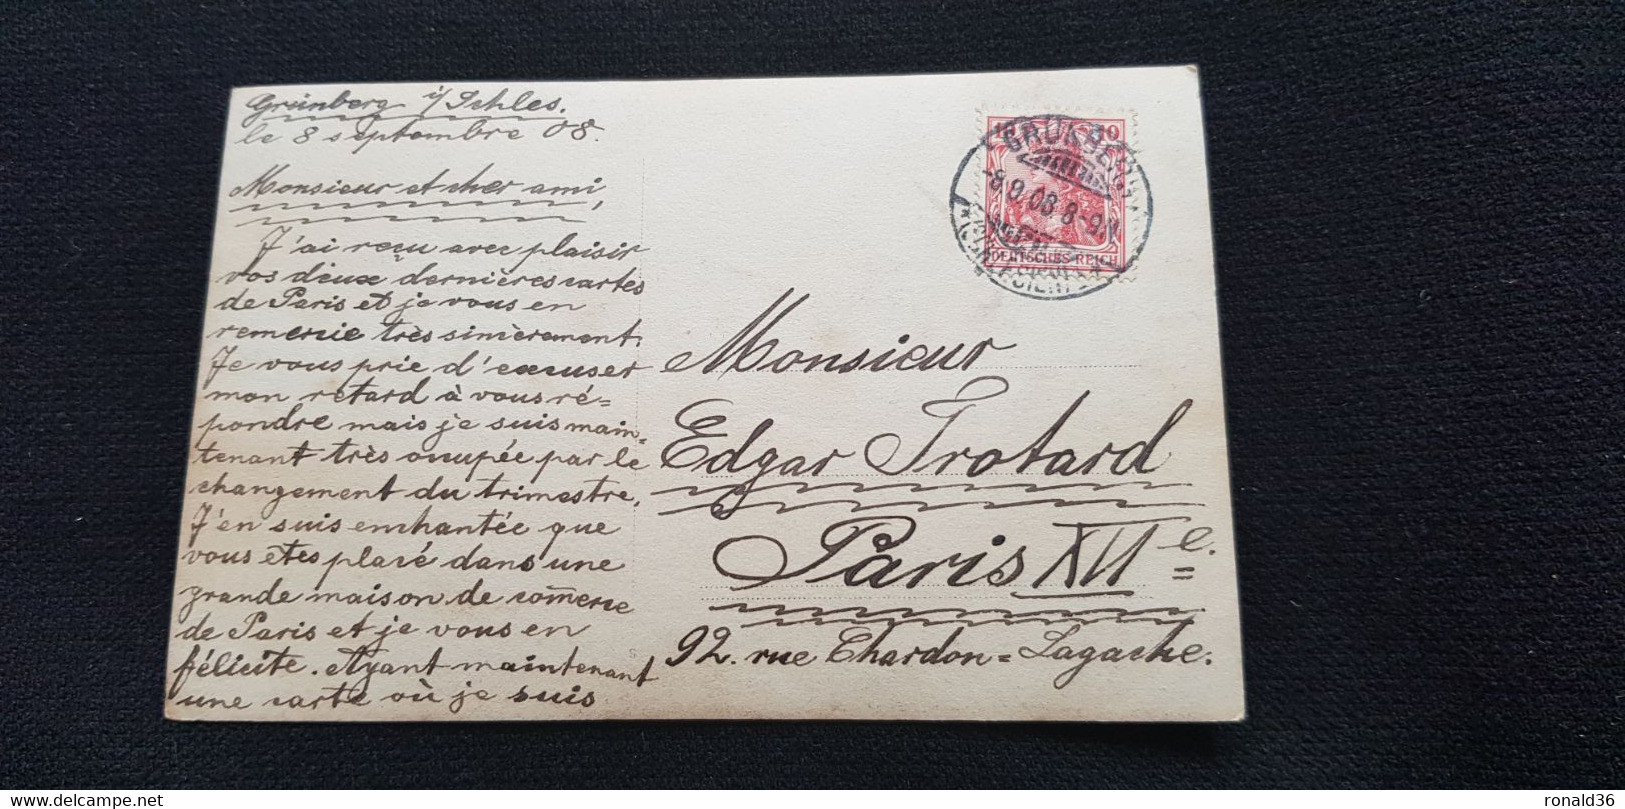 Grünberg i/Schles.
le 8 septembre 08.
Monsieur et cher ami,
J'ai reçu avec plaisir
vos deux dernières cartes
de Paris et je vous en
remercie très sincèrement.
Je vous prie d'excuser
mon retard à vous ré=
pondre mais je suis main=
tenant très occupée par le
changement du trimestre.
J'en suis enchantée que
vous etes placé dans une
grande maison de com̄erce
de Paris et je vous en
félicite. Ayant maintenant
une carte où je suis
10 10
DEUTSCHES REICH
GRÜNBERG
8.9.08 8-9V.
(SCHLESIEN)
Monsieur
Edgar Trotard
Paris XVIe.
92. rue Chardon=Lagache.
S
www.delcampe.net
ronald36